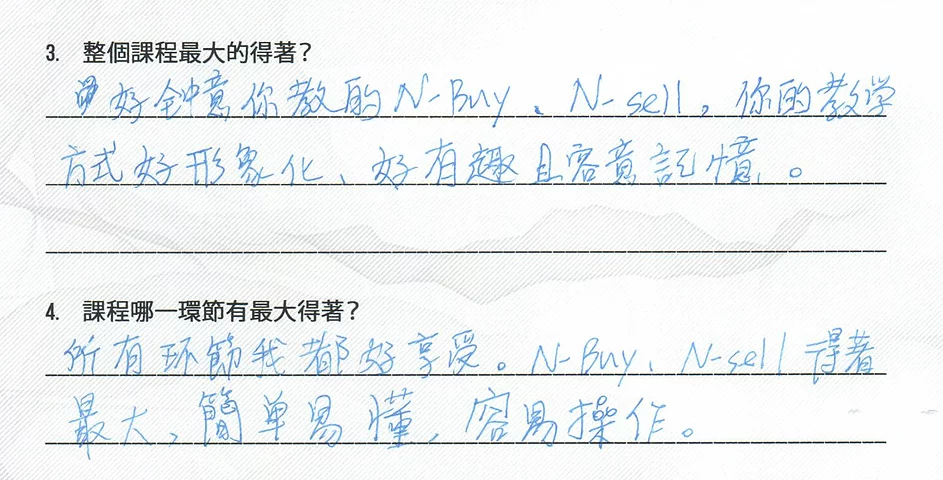 3. 整個課程最大的得著?
好鈡意你教的 N-Buy、N-sell, 你的教学
方式好形象化、好有趣且容意記憶。
4. 課程哪一環節有最大得著?
所有环節我都好享受。N-Buy、N-sell 得着
最大, 簡单易懂, 容易操作。